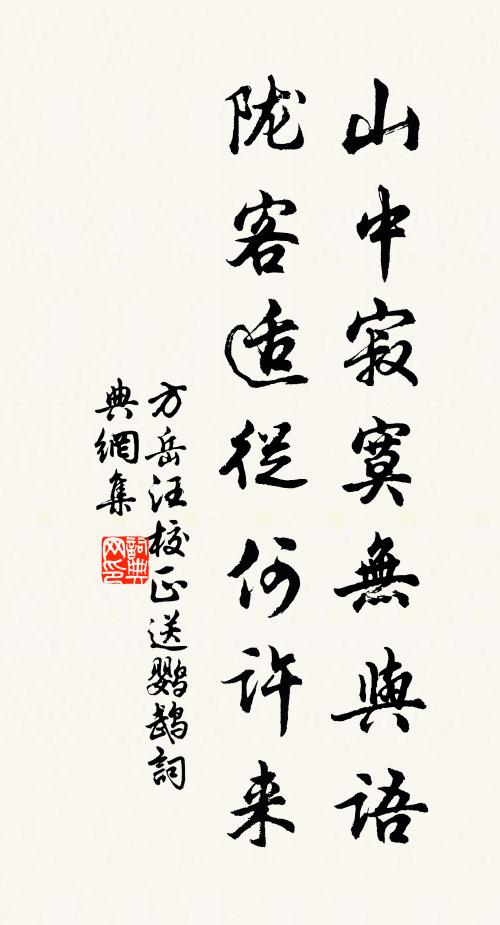 山中寂寞無與語
陇客适從何許来
方岳汪校正送鹦鹉詞
典網集
詞典
网印